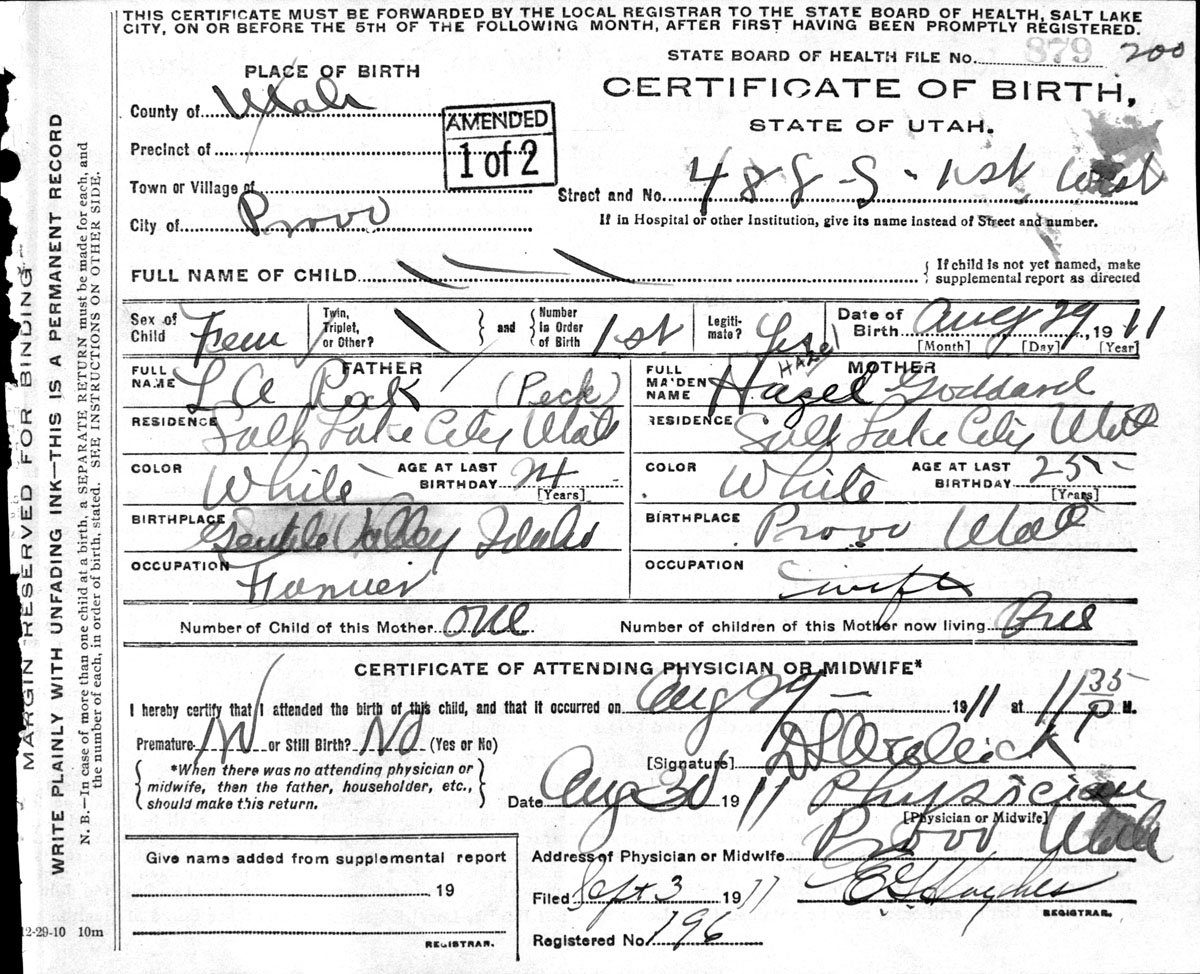 THIS CERTIFICATE MUST BE FORWARDED BY THE LOCAL REGISTRAR TO THE STATE BOARD OF HEALTH, SALT LAKE
CITY, ON OR BEFORE THE 5TH OF THE FOLLOWING MONTH, AFTER FIRST HAVING BEEN PROMPTLY REGISTERED.
STATE BOARD OF HEALTH FILE No. 879 200
PLACE OF BIRTH
CERTIFICATE OF BIRTH,
STATE OF UTAH.
County of Utah
AMENDED
1 of 2
Precinct of
Town or Village of
Street and No. 488 S. 1st West
City of Provo
If in Hospital or other Institution, give its name instead of Street and number.
FULL NAME OF CHILD
{ If child is not yet named, make
supplemental report as directed
Sex of Child Fem
Twin, Triplet, or Other?
} and { Number in Order of Birth 1st
Legiti-mate? Yes
Date of Birth Aug 29 1911
[Month] [Day] [Year]
FATHER
FULL NAME L A (Peck)
RESIDENCE Salt Lake City Utah
COLOR White
AGE AT LAST BIRTHDAY 24
[Years]
BIRTHPLACE Gentile Valley Idaho
OCCUPATION Farmer
HAZEL
MOTHER
FULL MAIDEN NAME Hazel Goddard
RESIDENCE Salt Lake City Utah
COLOR White
AGE AT LAST BIRTHDAY 25
[Years]
BIRTHPLACE Provo Utah
OCCUPATION
Number of Child of this Mother one
Number of children of this Mother now living One
CERTIFICATE OF ATTENDING PHYSICIAN OR MIDWIFE*
I hereby certify that I attended the birth of this child, and that it occurred on Aug 29 1911 at 11 35 P M.
Premature No or Still Birth? No (Yes or No)
*When there was no attending physician or
midwife, then the father, householder, etc.,
should make this return.
[Signature]
Date Aug 30 1911 Physician
[Physician or Midwife]
Address of Physician or Midwife Provo Utah
Give name added from supplemental report
19
REGISTRAR.
Filed Sept 3 1911 Hughes
REGISTRAR.
Registered No. 196
12-29-10 10m
MARGIN RESERVED FOR BINDING
WRITE PLAINLY WITH UNFADING INK—THIS IS A PERMANENT RECORD
N. B.—In case of more than one child at a birth, a SEPARATE RETURN must be made for each, and
the number of each, in order of birth, stated. SEE INSTRUCTIONS ON OTHER SIDE.